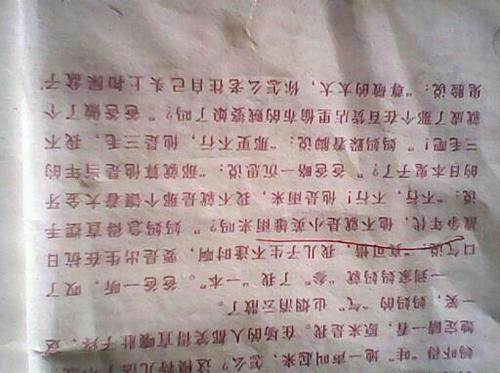 妈吓得“哇”地一声叫起来，怎么？这模特儿活
她定睛一看，原来是我。在场的人都笑得直嚷肚子疼
一笑，妈妈的“气”也烟消云散了。
一到家妈妈就“参”了我“一本”。爸爸一听，叹了
口气说：“真可惜，我儿子生不逢时啊，要是出生在抗日
战争年代，他不就是小英雄雨来吗？”妈妈急得直摆手
说：“不行，不行！他是雨来，我不就是那个镶着大金牙
的日本鬼子了？”爸爸略一沉思说：“那就算他是当年的
三毛吧！”妈妈跺着脚说：“更不行，他是三毛，我不
就成了那个在百货店里偷布的贼婆娘了吗？”爸爸做了个
鬼脸说：“尊敬的太太，你怎么老往自己头上扣屎盆子